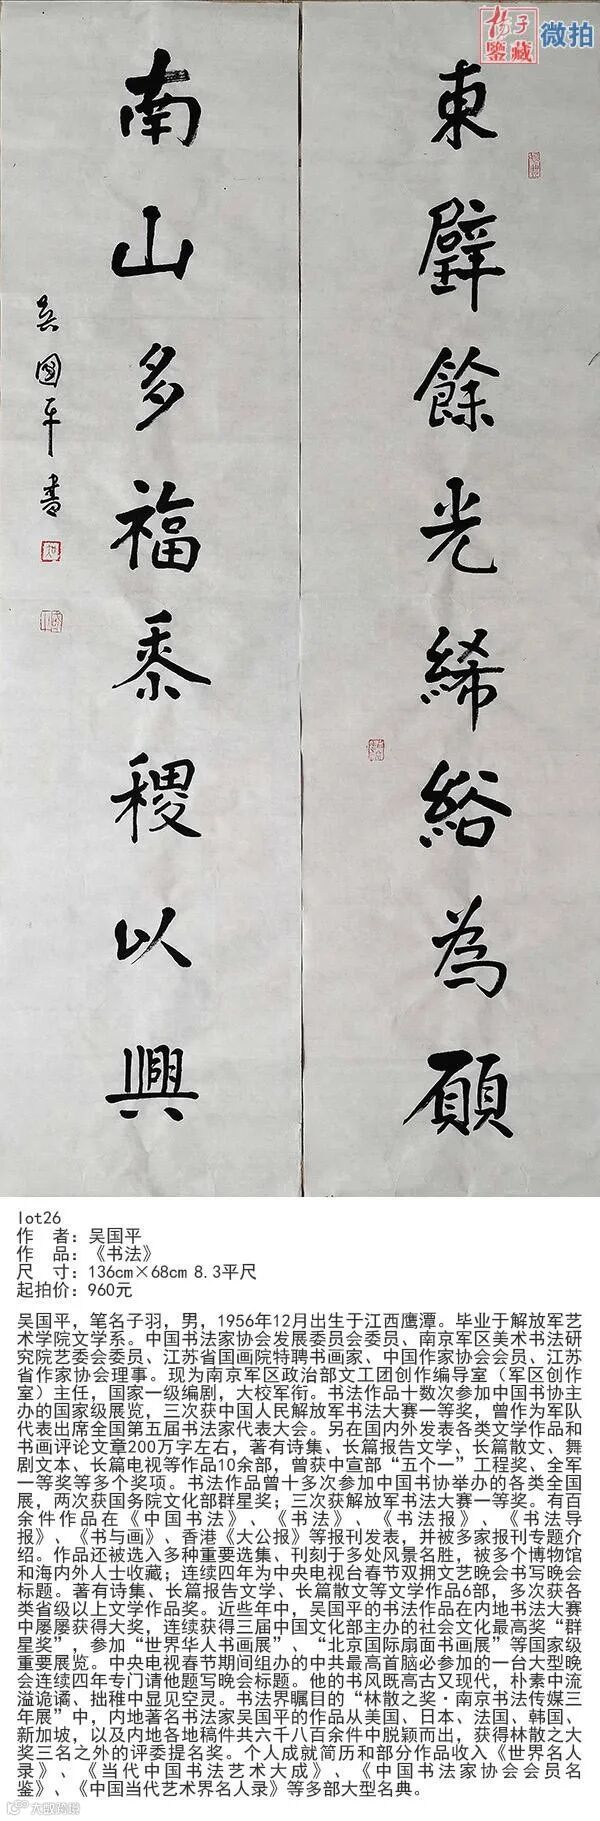 杨子
鉴藏
微拍
東壁餘光絺綌為願
南山多福黍稷以興
吴國平書
lot26
作 者：吴国平
作 品：《书法》
尺 寸：136cm×68cm 8.3平尺
起拍价：960元
吴国平，笔名子羽，男，1956年12月出生于江西鹰潭。毕业于解放军艺
术学院文学系。中国书法家协会发展委员会委员、南京军区美术书法研
究院艺委会委员、江苏省国画院特聘书画家、中国作家协会会员、江苏
省作家协会理事。现为南京军区政治部文工团创作编导室（军区创作
室）主任，国家一级编剧，大校军衔。书法作品十数次参加中国书协主
办的国家级展览，三次获中国人民解放军书法大赛一等奖，曾作为军队
代表出席全国第五届书法家代表大会。另在国内外发表各类文学作品和
书画评论文章200万字左右，著有诗集、长篇报告文学、长篇散文、舞
剧文本、长篇电视等作品10余部，曾获中宣部“五个一”工程奖、全军
一等奖等多个奖项。书法作品曾十多次参加中国书协举办的各类全国
展，两次获国务院文化部群星奖；三次获解放军书法大赛一等奖。有百
余件作品在《中国书法》、《书法》、《书法报》、《书法导
报》、《书与画》、香港《大公报》等报刊发表，并被多家报刊专题介
绍。作品还被选入多种重要选集、刊刻于多处风景名胜，被多个博物馆
和海内外人士收藏；连续四年为中央电视台春节双拥文艺晚会书写晚会
标题。著有诗集、长篇报告文学、长篇散文等文学作品6部，多次获各
类省级以上文学作品奖。近些年中，吴国平的书法作品在内地书法大赛
中屡屡获得大奖，连续获得三届中国文化部主办的社会文化最高奖“群
星奖”，参加“世界华人书画展”、“北京国际扇面书画展”等国家级
重要展览。中央电视春节期间组办的中共最高首脑必参加的一台大型晚
会连续四年专门请他题写晚会标题。他的书风既高古又现代，朴素中流
溢诡谲、拙稚中显见空灵。书法界瞩目的“林散之奖·南京书法传媒三
年展”中，内地著名书法家吴国平的作品从美国、日本、法国、韩国、
新加坡，以及内地各地稿件共六千八百余件中脱颖而出，获得林散之大
奖三名之外的评委提名奖。个人成就简历和部分作品收入《世界名人
录》、《当代中国书法艺术大成》、《中国书法家协会会员名
鉴》、《中国当代艺术界名人录》等多部大型名典。